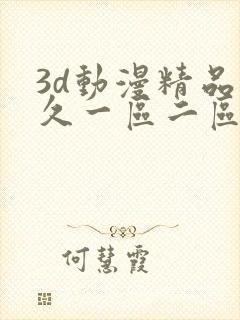 3d動漫精品
久一區二區
何慧霞